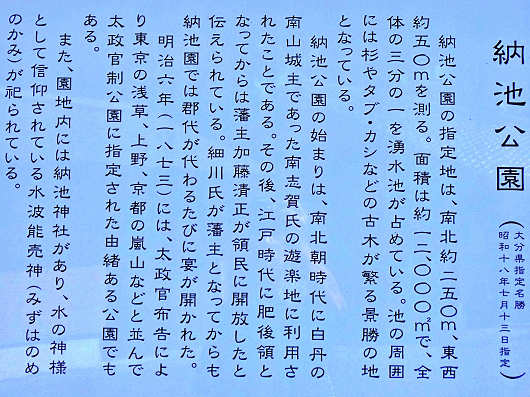 納池公園
（大分県指定名勝
昭和十八年七月十三日指定）
納池公園の指定地は、南北約二五〇m、東西
約五〇mを測る。面積は約一二、〇〇〇㎡で、全
体の三分の一を湧水池が占めている。池の周囲
には杉やタブ・カシなどの古木が繁る景勝の地
となっている。
納池公園の始まりは、南北朝時代に白丹の
南山城主であった南志賀氏の遊楽地に利用さ
れたことである。その後、江戸時代に肥後領と
なってからは藩主加藤清正が領民に開放したと
伝えられている。細川氏が藩主となってからも
納池園では郡代が代わるたびに宴が開かれた。
明治六年（一八七三）には、太政官布告によ
り東京の浅草、上野、京都の嵐山などと並んで
太政官制公園に指定された由緒ある公園でも
ある。
また、園地内には納池神社があり、水の神様
として信仰されている水波能売神（みずはのめ
のかみ）が祀られている。